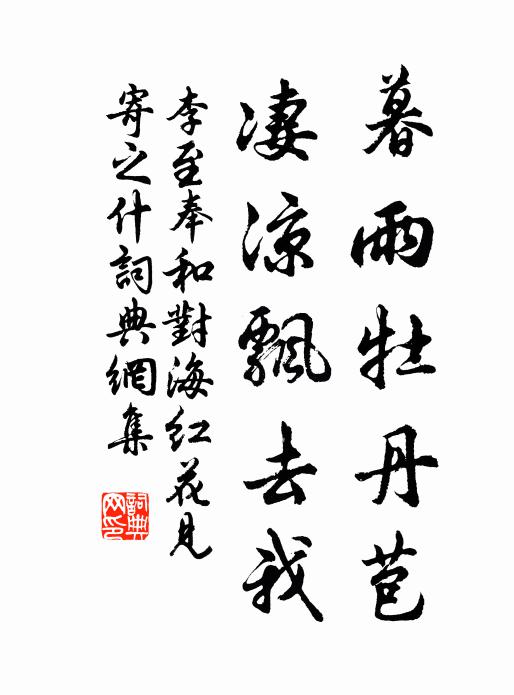 暮雨牡丹芭
凄涼飄去我
李至奉和對海红花見
寄之什詞典網集
詞典
网印